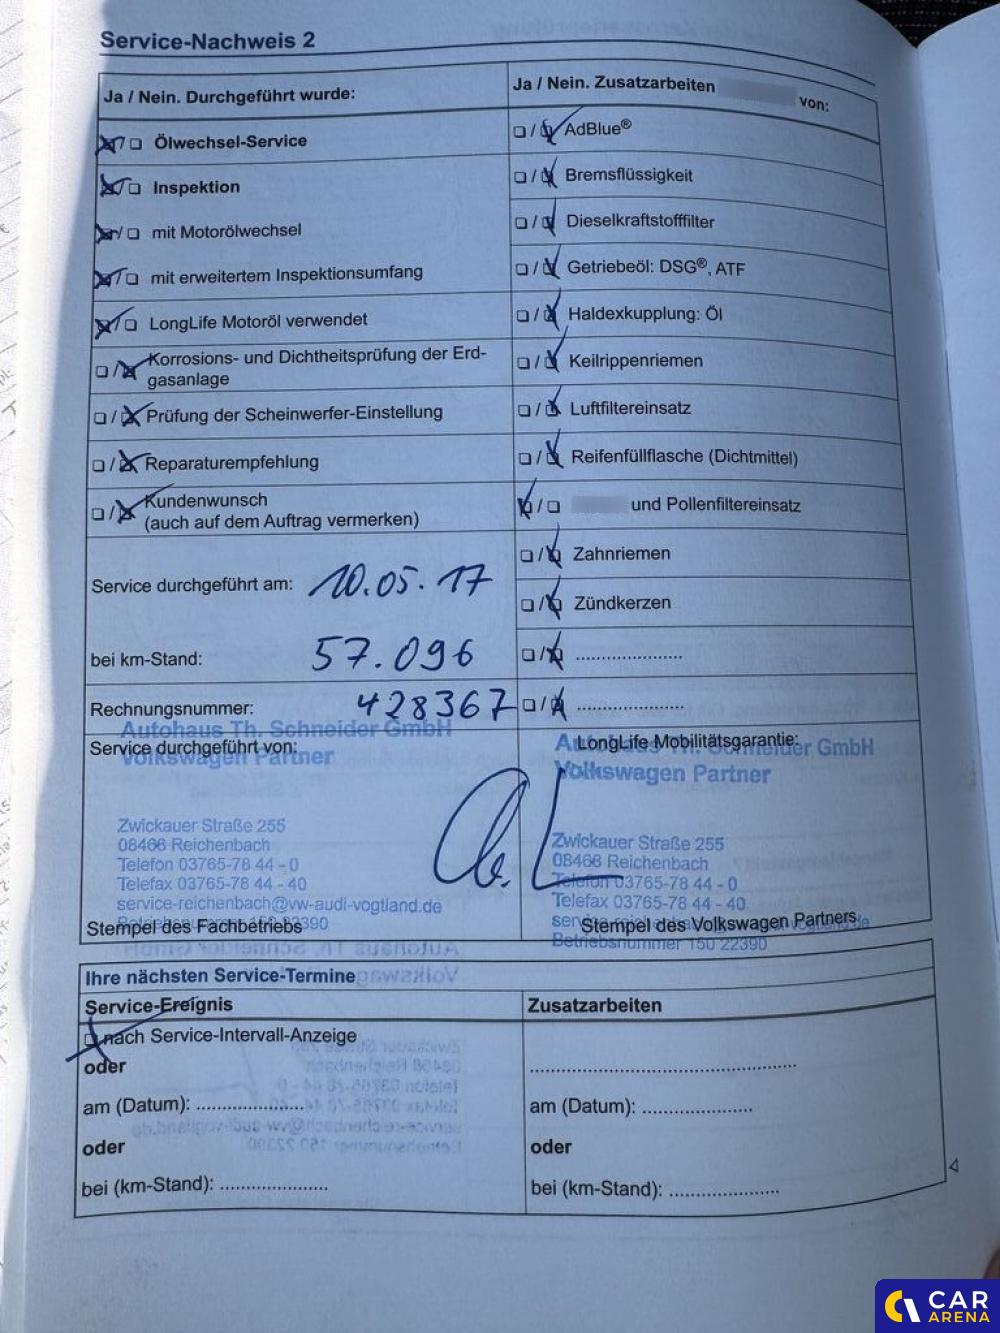 Service-Nachweis 2
Ja / Nein. Durchgeführt wurde:
Ölwechsel-Service
Inspektion
mit Motorölwechsel
mit erweitertem Inspektionsumfang
LongLife Motoröl verwendet
Korrosions- und Dichtheitsprüfung der Erd-
gasanlage
Prüfung der Scheinwerfer-Einstellung
Reparaturempfehlung
Kundenwunsch
(auch auf dem Auftrag vermerken)
Service durchgeführt am: 10.05.17
bei km-Stand: 57.096
Rechnungsnummer: 428367
Ja / Nein. Zusatzarbeiten von:
AdBlue®
Bremsflüssigkeit
Dieselkraftstofffilter
Getriebeöl: DSG®, ATF
Haldexkupplung: Öl
Keilrippenriemen
Luftfiltereinsatz
Reifenfüllflasche (Dichtmittel)
und Pollenfiltereinsatz
Zahnriemen
Zündkerzen
Autohaus Th. Schneider GmbH
Service durchgeführt von:
Volkswagen Partner
Zwickauer Straße 255
08468 Reichenbach
Telefon 03765-78 44 - 0
Telefax 03765-78 44 - 40
service-reichenbach@vw-audi-vogtland.de
Betriebsnummer 150 22390
Stempel des Fachbetriebs
LongLife Mobilitätsgarantie:
Autohaus Th. Schneider GmbH
Volkswagen Partner
Zwickauer Straße 255
08468 Reichenbach
Telefon 03765-78 44 - 0
Telefax 03765-78 44 - 40
service-reichenbach@vw-audi-vogtland.de
Stempel des Volkswagen Partners
Betriebsnummer 150 22390
Ihre nächsten Service-Termine
Service-Ereignis
nach Service-Intervall-Anzeige
oder
am (Datum): ....................
oder
bei (km-Stand): ....................
Zusatzarbeiten
am (Datum): ....................
oder
bei (km-Stand): ....................
CAR
ARENA